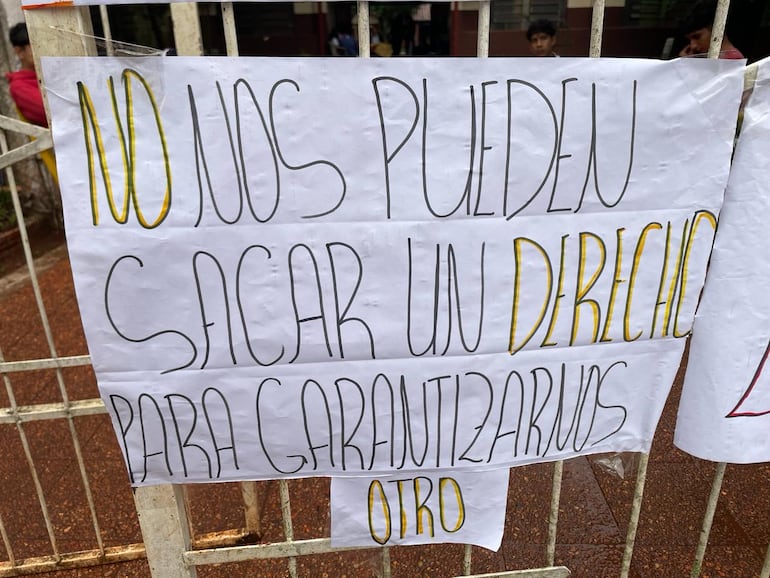 NO NOS PUEDEN
SACAR UN DERECHO
PARA GARANTIZARNOS
OTRO